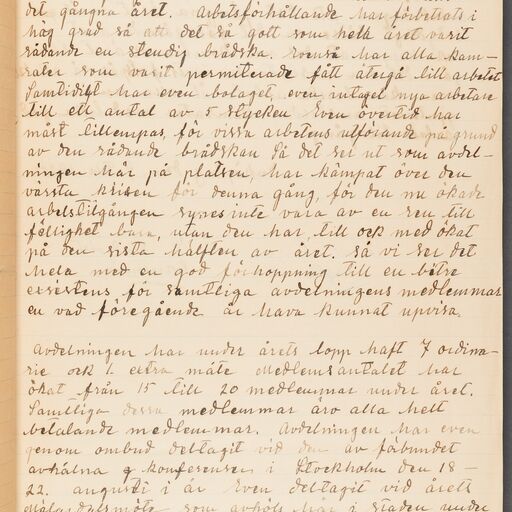 det gångna året. Arbetsförhållande har förbettrats i
hög grad så att det så gott som hela året varit
rådande en stendig brådska. Även så har alla kam-
rater som varit permiterade fått återgå till arbetet
Samtidigt har även bolaget, even intaget nya arbetare
till ett antal av 5 stycken Even övertid har
måst tillempas, för vissa arbetens utförande på grund
av den rådande brådskan Så det ser ut som avdel-
ningen här på platsen, har kämpat över den
värsta krisen för denna gång, för den nu ökade
arbetstilgången synes inte vara av en ren till
fällighet bara, utan den har till ock med ökat
på den sista hälften av året. Så vi ser det
hela med en god förhoppning till en bätre
exsistens för samtliga avdelningens medlemmar
en vad föregående år hava kunnat uppvisa.
Avdelningen har under årets lopp haft 7 ordina-
rie ock 1 extra möte Medlemsantalet har
ökat från 15 till 20 medlemmar under året.
Samtliga dessa medlemmar äro alla helt
betalande medlemmar. Avdelningen har även
genom ombud deltagit vid den av förbundet
avhålna konferensen i Stockholm den 18-
22. augusti i år Even deltagit vid årets
som avhöls här i staden under